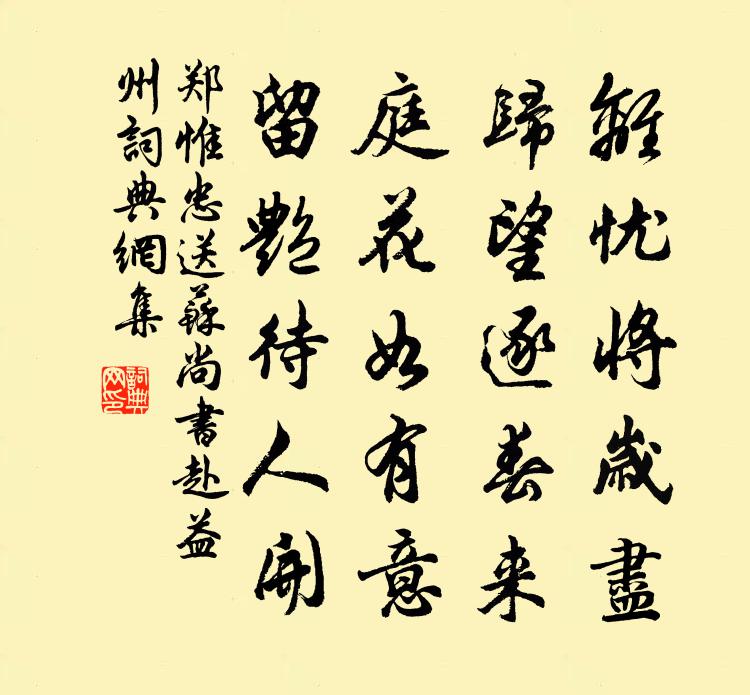 離忧将歲盡
歸望逐春来
庭花如有意
留艷待人開
郑惟忠送蘇尚書赴益
州詞典網集
詞典
网印